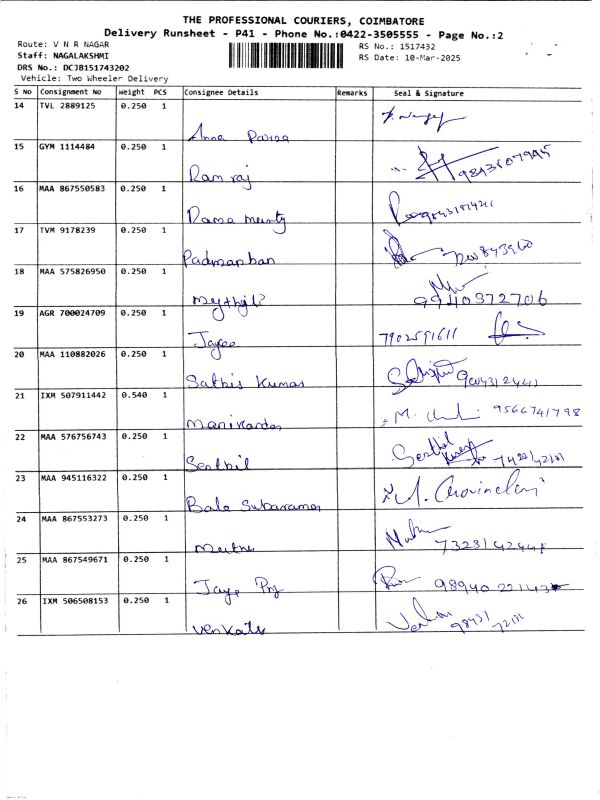 THE PROFESSIONAL COURIERS, COIMBATORE
Delivery Runsheet - P41 - Phone No.:0422-3505555 - Page No.:2
Route: V N R NAGAR
RS No.: 1517432
Staff: NAGALAKSHMI
RS Date: 10-Mar-2025
DRS No.: DCJB151743202
Vehicle: Two Wheeler Delivery
S No Consignment No Weight PCS Consignee Details Remarks Seal & Signature
14 TVL 2889125 0.250 1
Anna
15 GYM 1114484 0.250 1
Ramraj
16 MAA 867550583 0.250 1
Rama
17 TVM 9178239 0.250 1
Padmanban
18 MAA 575826950 0.250 1
Mythyli 9940372706
19 AGR 700024709 0.250 1
Jayee 7902591611
20 MAA 110882026 0.250 1
Sathis Kumar
21 IXM 507911442 0.540 1
Manikandan 9566741798
22 MAA 576756743 0.250 1
Senthil Senthil
23 MAA 945116322 0.250 1
Bala Subaraman
24 MAA 867553273 0.250 1
25 MAA 867549671 0.250 1
Jaya
26 IXM 506508153 0.250 1
Venkats